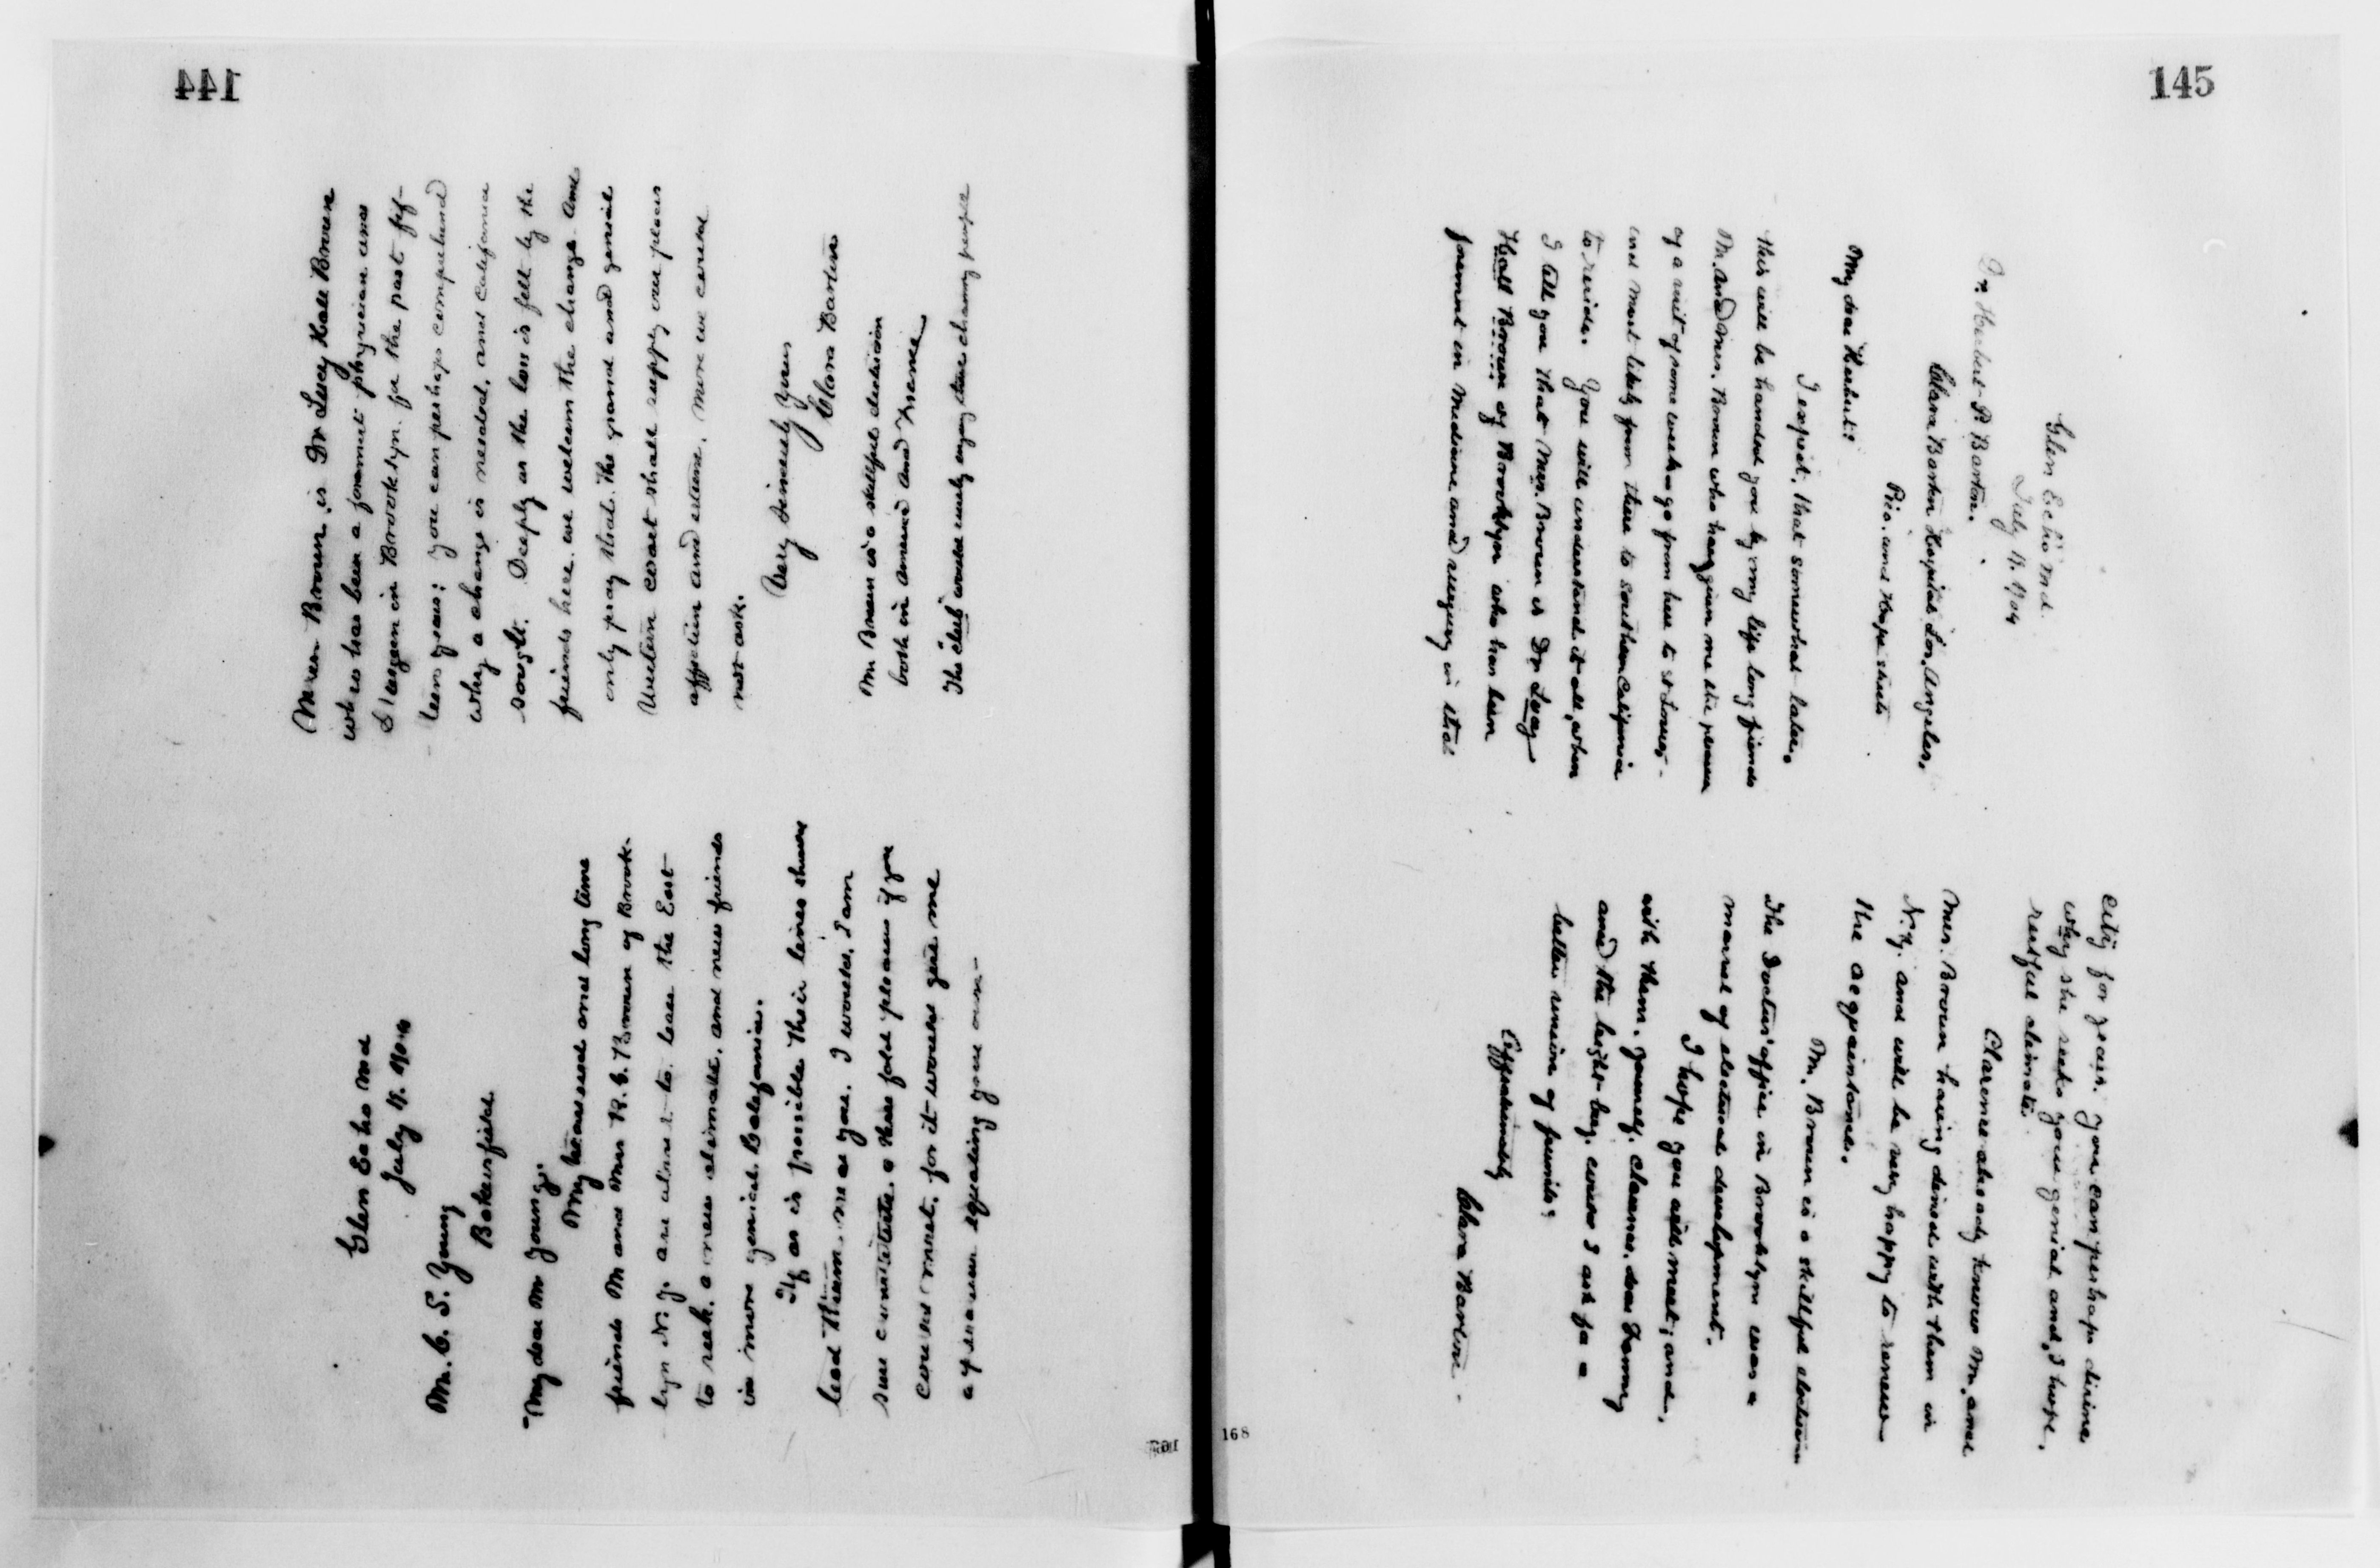 144
Glen Echo Md
July 11. 1904
Mr. C. S. Young
Bakersfield
My dear Mr Young.
My treasured and long time
friends Mr and Mrs R. C. Brown of Brook-
lyn N.Y. are about to leave the East
to seek a new climate, and new friends
in more genial California.
If as is possible their lines should
lead them near you. I would, I am
sure constitute a three fold pleasure if you
could meet, for it would give me
a pleasure equaling your own-
Mrs Brown is Dr Lucy Hall Brown
who has been a foremost physician and
Surgeon in Brooklyn for the past fif-
teen years; you can perhaps comprehend
why a change is needed, and California
sought. Deeply as the loss is felt by the
friends here we welcome the change and
only pray that the grand and genial
Western coast shall supply our places
affection and esteem. More we could
not ask.
Very sincerely yours
Clara Barton
Mr Brown is a skillful electrician
both in America and France
The club would surely enjoy these charming people
145
Glen Echo Md.
July 11. 1904
Dr. Herbert P. Barton.
Clara Barton Hospital Los Angeles.
Pico. and Hope streets
My dear Herbert:
I expect, that somewhat later.
this will be handed you by my life long friends
Mr. and Mrs. Brown who having given me the pleasure
of a visit of some weeks go from here to St Louis-
and most likely from there to Southern California
to reside. You will understand it all, when
I tell you that Mrs. Brown is Dr Lucy
Hall Brown of Brooklyn who has been
foremost in Medicine and surgery in that
city for years. You can perhaps divine
why she seeks your genial and, I hope,
restful climate.
Clarence already knows Mr. and
Mrs. Brown having dined with them in
N.Y. and will be very happy to renew
the acquaintance.
Mr. Brown is a skillful electrician
The Doctors' office in Brooklyn was a
marvel of electrical development.
I hope you will meet; and,
with them, yourself, Clarence, dear Fanny
and the bright boy, could I ask for a
better reunion of friends?
Affectionately
Clara Barton.
168